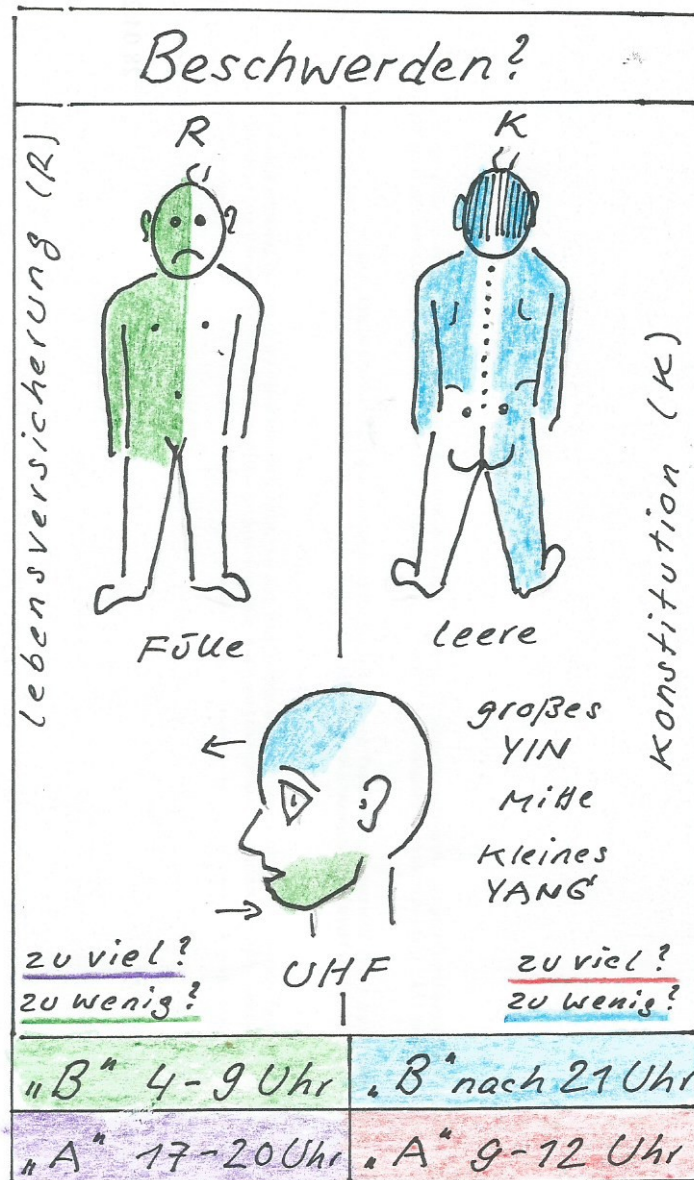 Beschwerden?
Lebensversicherung (R)
R
K
Konstitution (K)
Fülle
Leere
großes
YIN
Mitte
Kleines
YANG
UHF
zu viel?
zu wenig?
zu viel?
zu wenig?
„B“ 4-9 Uhr
„B“ nach 21 Uhr
„A“ 17-20 Uhr
„A“ 9-12 Uhr